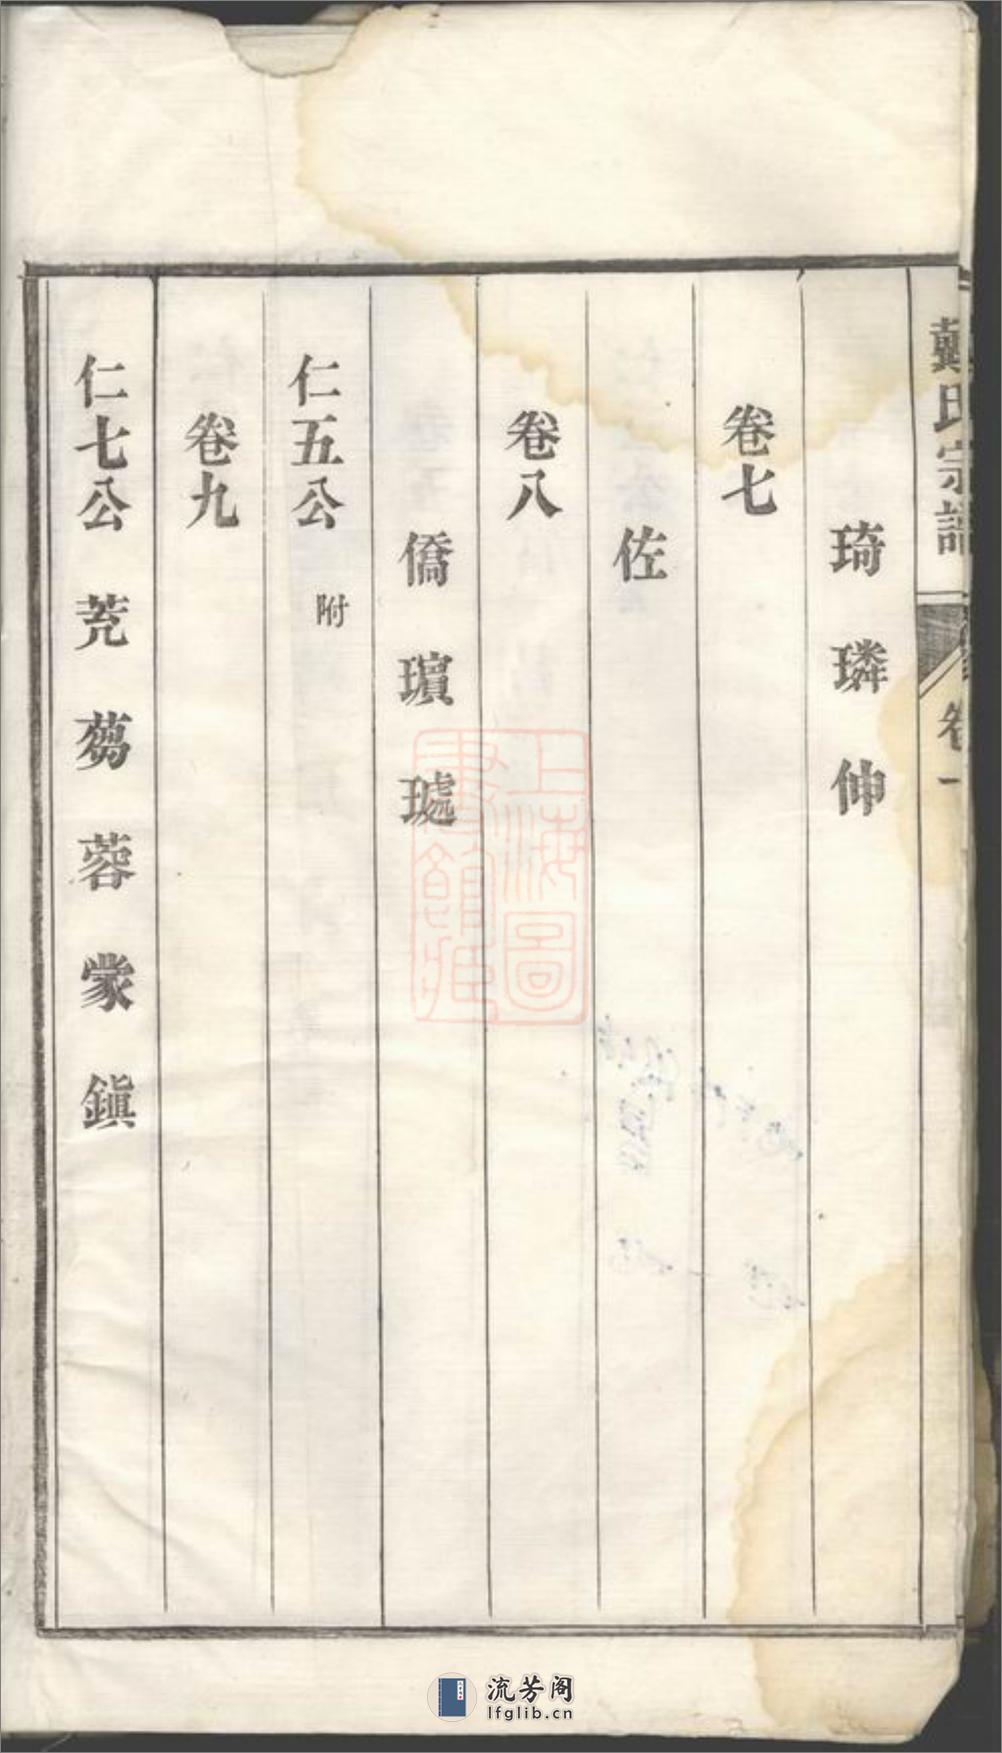 戴氏宗譜
卷一
琦 璘 伸
卷七
佐
卷八
僑 璸 琥
仁五公 附
卷九
仁七公 蒄 蒭 蓉 蒙 鎭
上海圖書館藏
流芳阁
lfglib.cn